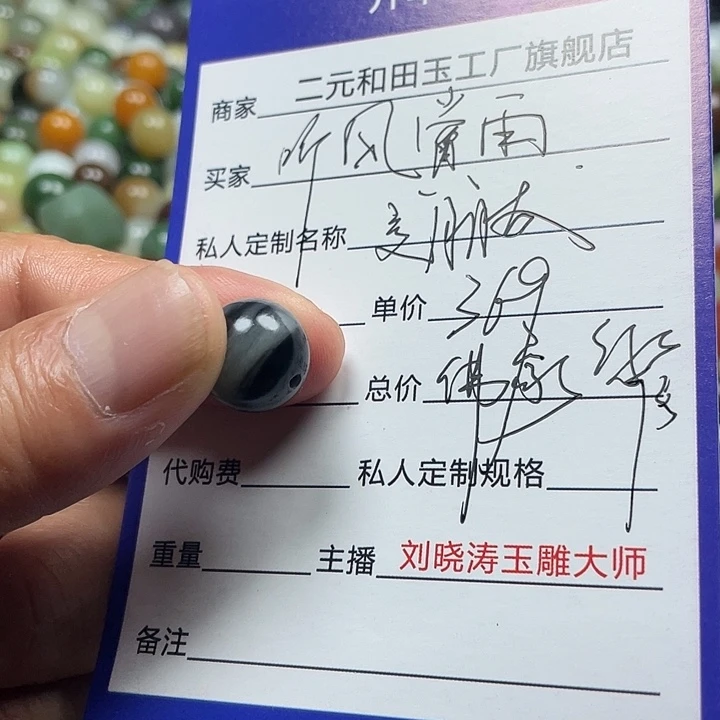 商家 二元和田玉工厂旗舰店
买家 听风賞雨
私人定制名称
单价 369
总价 佛家
代购费 私人定制规格
重量 主播 刘晓涛玉雕大师
备注